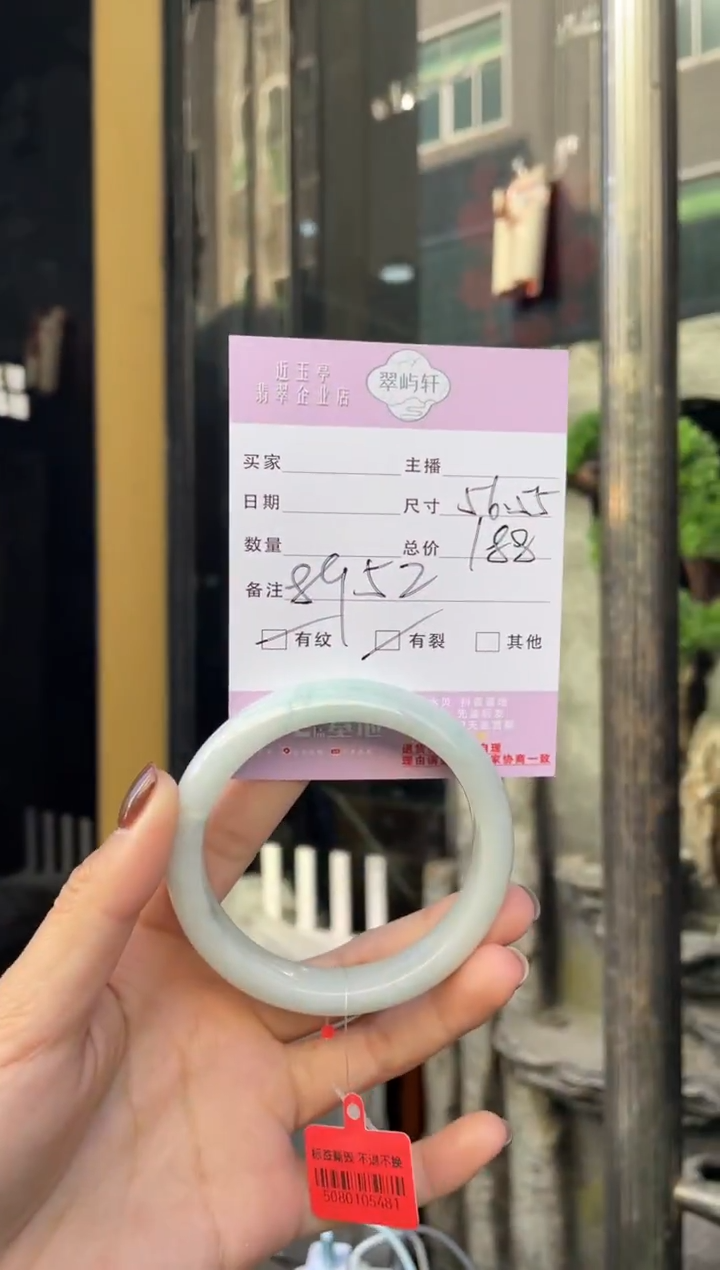 近玉亭
翡翠企业店
翠屿轩
买家 主播
日期 尺寸 56.55
数量 总价 188
备注 8952
有纹 有裂 其他
退货
理由
家协商一致
标签撕毁 不退不换
5080105481